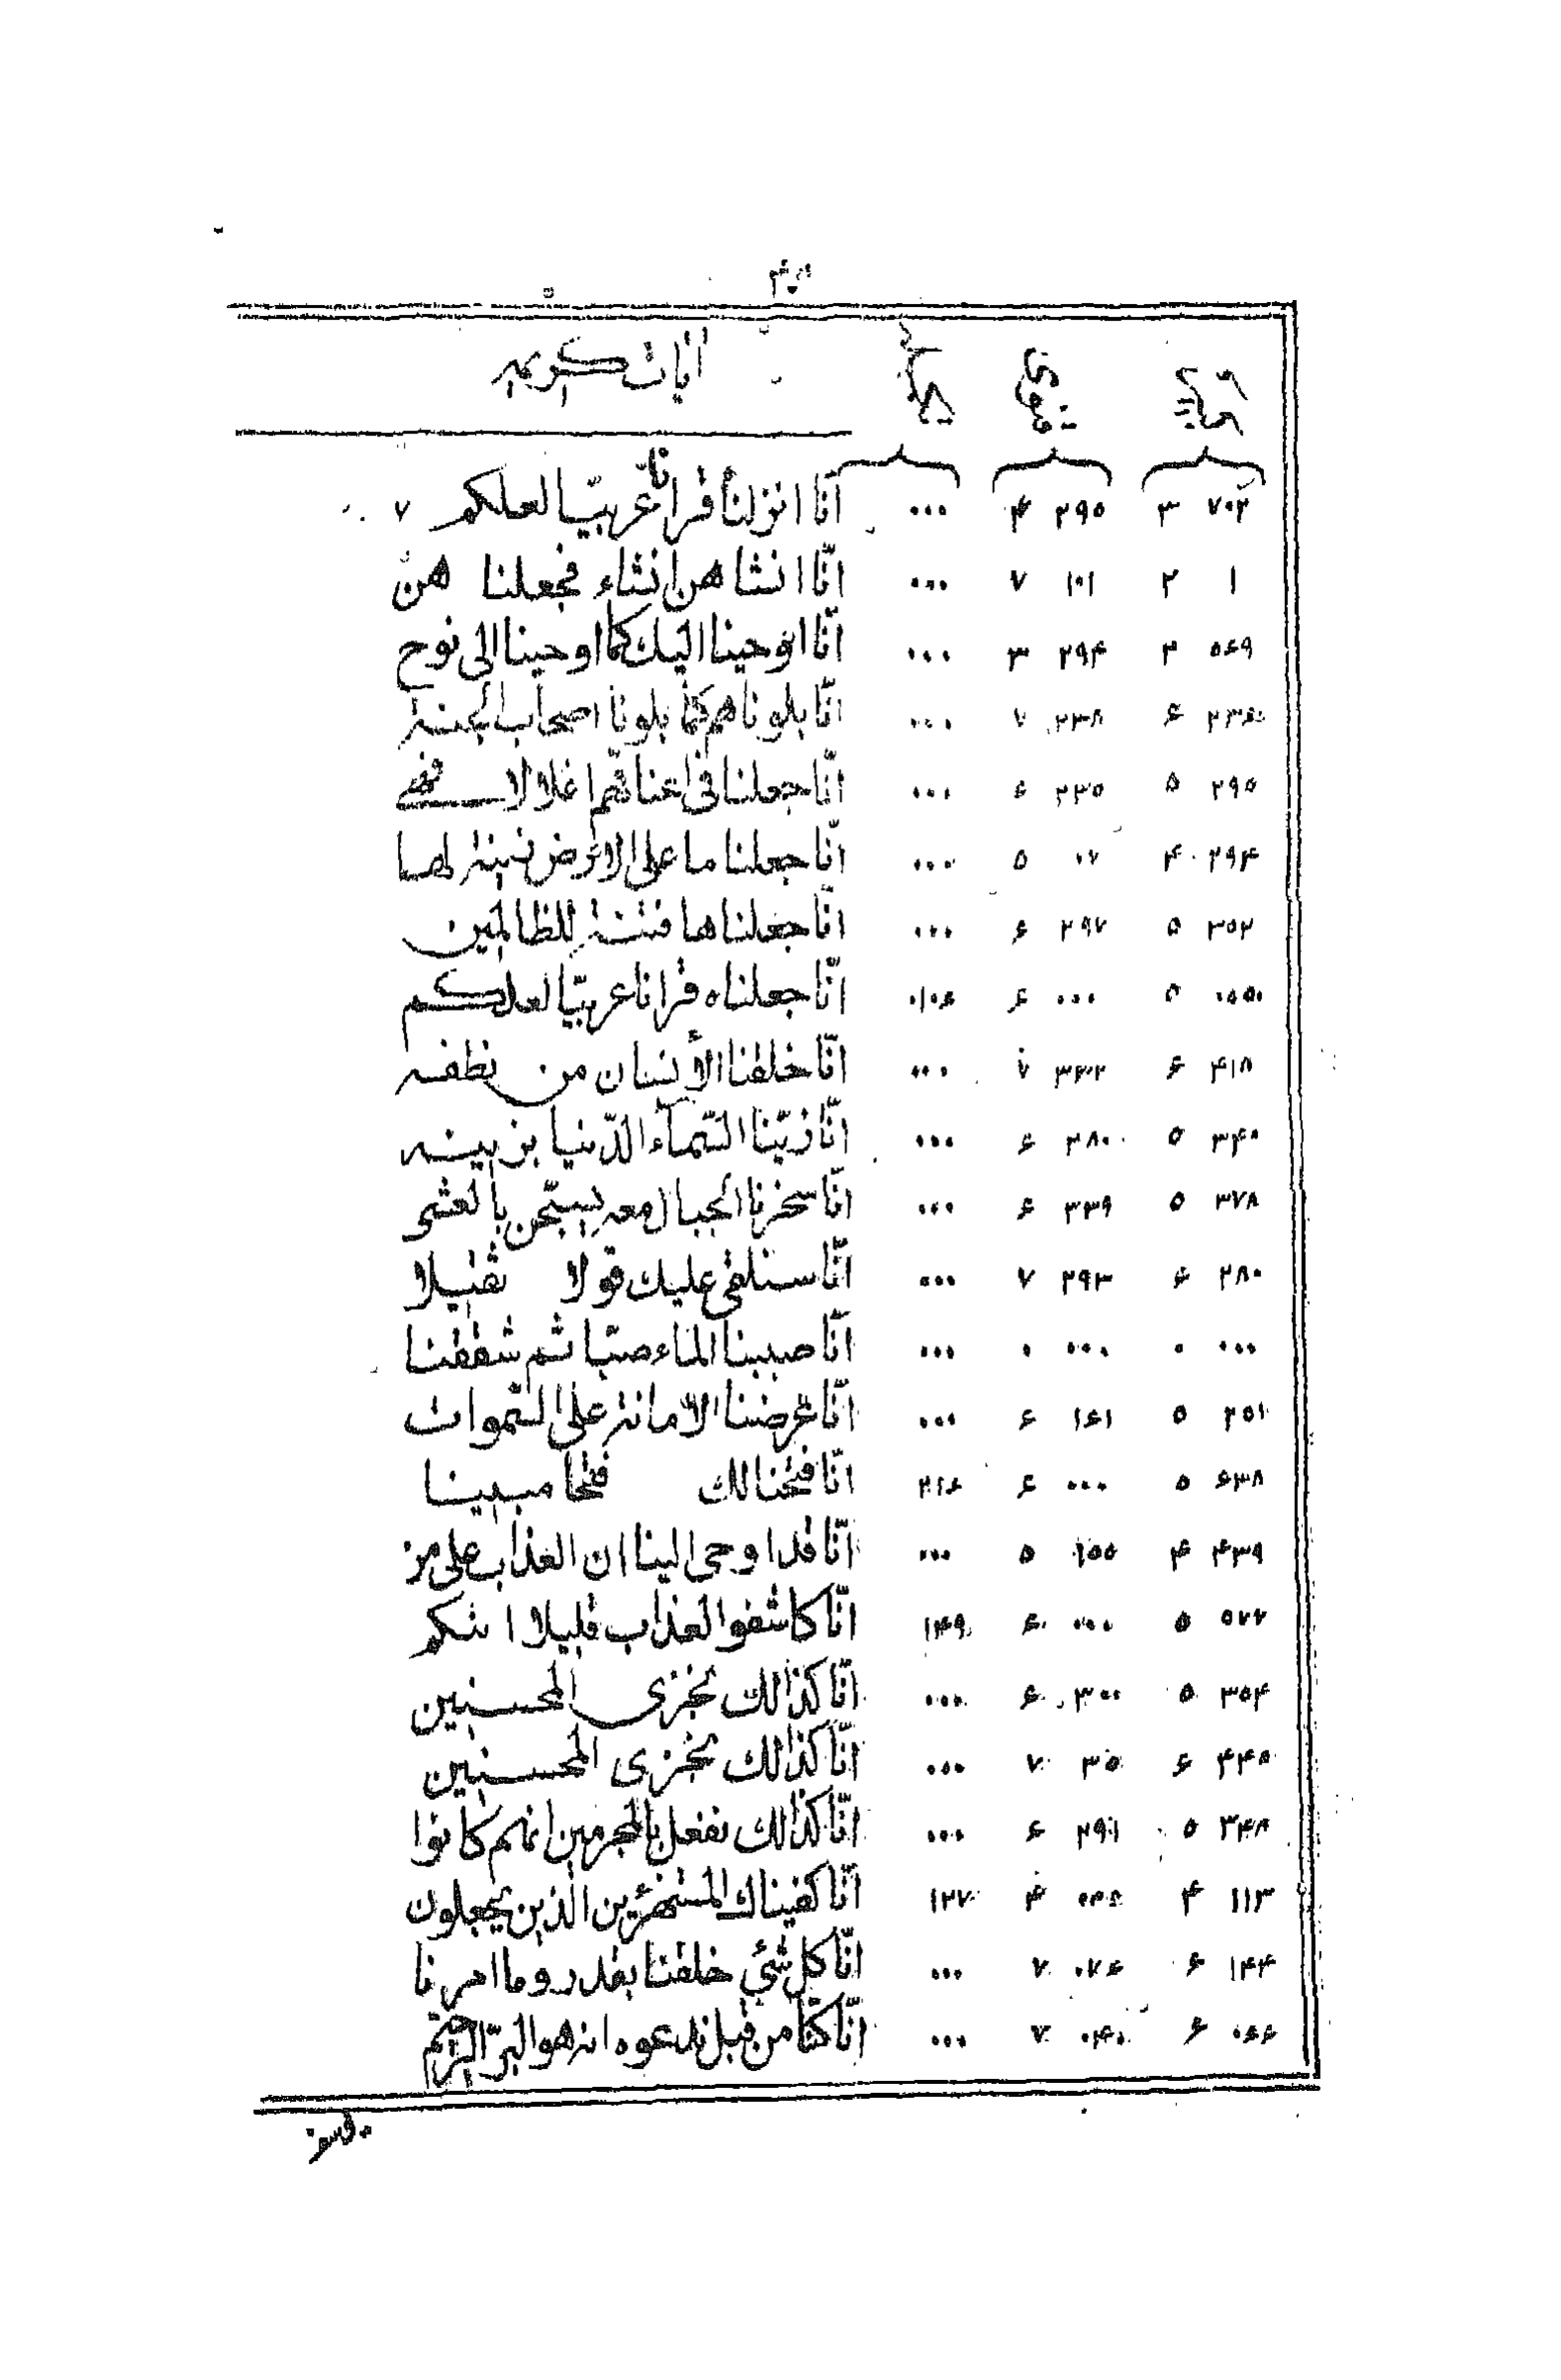 آیات کریمه
۷۰۲ ۳ ۲۹۵ ۴ ۰۰۰ انّا انزلناه قرانا عربیّا لعلکم ۷
۱ ۲ ۱۰۱ ۷ ۰۰۰ انّا انشاهن انشاء فجعلنا هن
۵۶۹ ۲ ۲۹۴ ۳ ۰۰۰ انّا اوحینا الیك کما اوحینا الی نوح
۶ ۲۳۸ ۷ ۰۰۰ انّا بلوناهم کما بلونا اصحاب الجنة
۲۹۵ ۵ ۲۳۵ ۶ ۰۰۰ انّا جعلنا فی اعناقهم اغلالا فهی
۲۹۴ ۴ ۵ ۰۰۰ انّا جعلنا ما علی الارض زینة لها
۳۵۲ ۵ ۲۹۷ ۶ ۰۰۰ انّا جعلناها فتنة للظالمین
۵ ۰۰۰ ۶ انّا جعلناه قرانا عربیّا لعلکم
۴۱۸ ۶ ۷ ۰۰۰ انّا خلقنا الأنسان من نطفه
۳۴۰ ۵ ۲۸۰ ۶ ۰۰۰ انّا زیّنا السّمآء الدّنیا بزینه
۳۷۸ ۵ ۳۳۹ ۶ ۰۰۰ انّا سخرنا الجبال معه یسبّحن بالعشی
۲۸۰ ۶ ۲۹۳ ۷ ۰۰۰ انّا سنلقی علیك قولا ثقیلا
۰۰۰ ۰ ۰۰۰ ۰ ۰۰۰ انّا صببنا الماء صبّا ثم شققنا
۲۵۱ ۵ ۱۶۱ ۶ ۰۰۰ انّا عرضنا الامانة علی السّموات
۶۳۸ ۵ ۰۰۰ ۶ ۲۱۶ انّا فتحنا لك فتحا مبینا
۴۳۹ ۴ ۱۵۵ ۵ ۰۰۰ انّا قد اوحی الینا ان العذاب علی من
۵۷۷ ۵ ۰۰۰ ۶ ۱۴۹ انّا کاشفوا لعذاب قلیلا انکم
۳۵۴ ۵ ۳۰۰ ۶ ۰۰۰ انّا کذالك نجزی المحسنین
۴۴۸ ۶ ۳۵ ۷ ۰۰۰ انّا کذالك نجزی المحسنین
۳۴۸ ۵ ۲۹۱ ۶ ۰۰۰ انّا کذالك نفعل بالمجرمین انهم کانوا
۱۱۳ ۴ ۴ ۱۲۷ انّا کفیناك المستهزئین الذین یجعلون
۱۴۴ ۶ ۰۷۶ ۷ ۰۰۰ انّا کل شئ خلقنا بقدر وما امرنا
۰۶۶ ۶ ۰۴۰ ۷ ۰۰۰ انّا کنّا من قبل ندعوه انه هو البرّ الرحیم